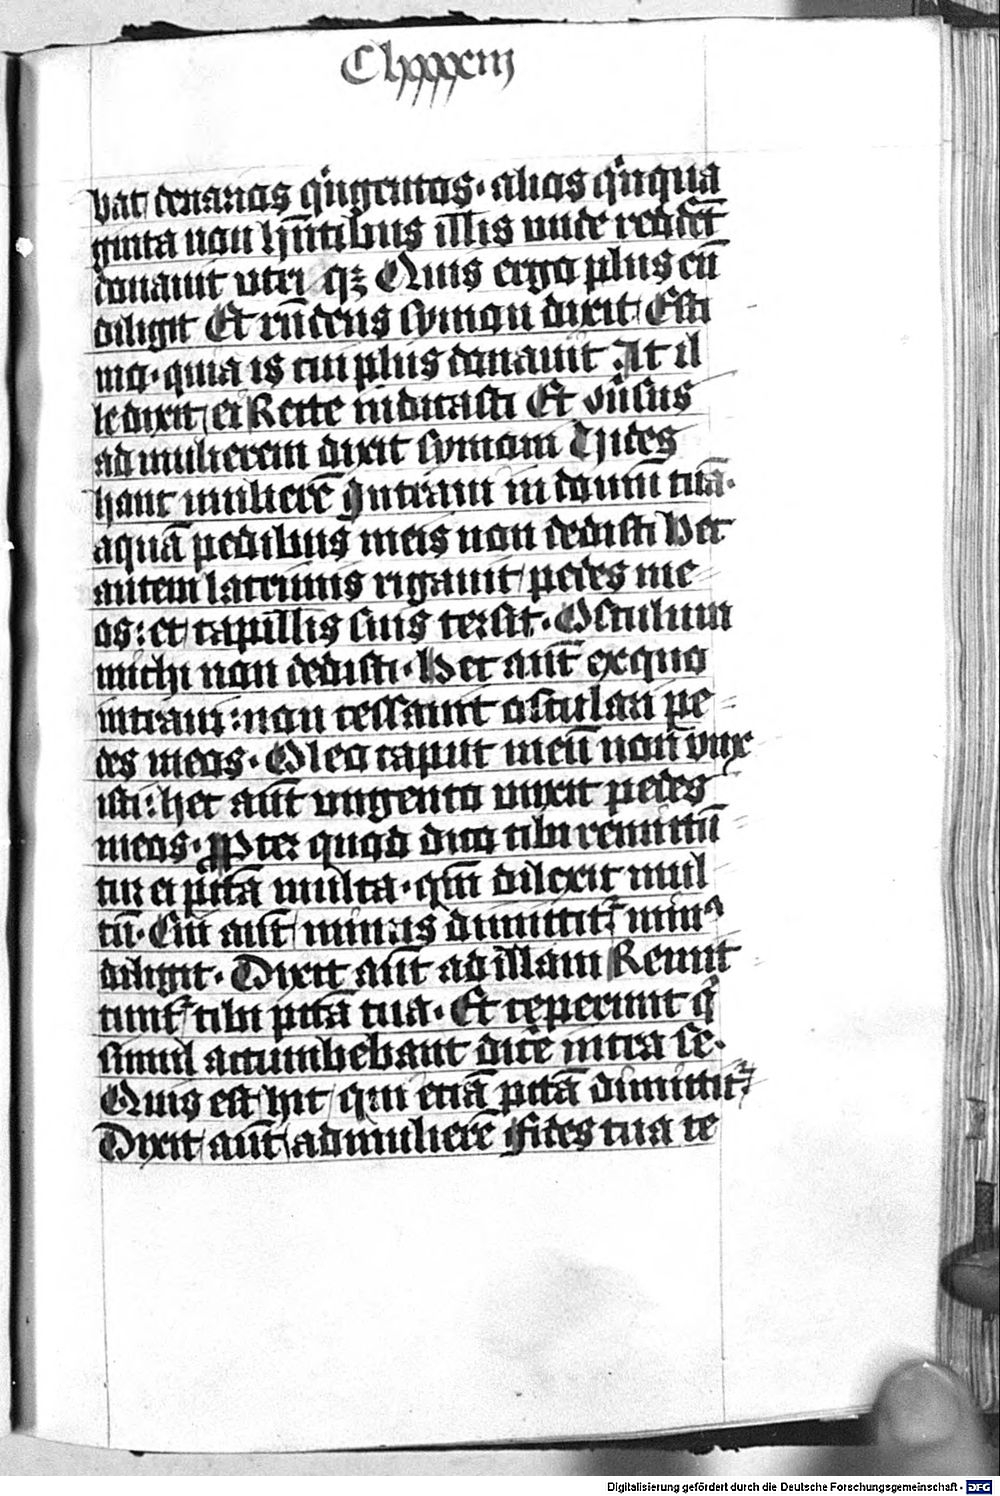 Clxxxxciii
bat denarios q̇ngentos · alios q̇nqua
ginta non hn̄tibus illis unde reddeīt
donauit utri qꝫ Quis ergo plus eū
diligit Et rn̄dens symon dixit Esti
mo · quia is cui plus donauit At il
le dixit ei Recte iudicasti Et ꝯu̇sus
ad mulierem dixit symoni Uides
hanc mulierē Intraui in domū tuā ·
aquā pedibus meis non dedisti hec
autem lacrimis rigauit pedes me-
os : et capillis suis tersit · Osculum
michi non dedisti · Hec aūt ex quo
intraui : non cessauit osculari pe-
des meos · Oleo caput meū non unx-
isti : hec aūt ungento unxit pedes
meos · Ppter quod dico tibi remittū-
tur ei pctā multa · qm̄ dilexit mul-
tū · Cui aūt minus dimittit᷑ minꝰ
diligit · Dixit aūt ad illam Remit-
tunt᷑ tibi pctā tua · Et ceperunt q̇
simul accumbebant dicē intra se ·
Quis est hic qui etiā pctā dimittit ·
Dixit aūt ad mulierē Fides tua te
Digitalisierung gefördert durch die Deutsche Forschungsgemeinschaft - DFG